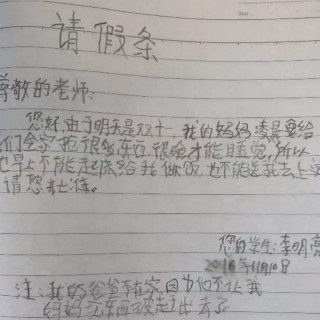 请假条
尊敬的老师:
您好,由于明天是双十一,我的妈妈凌晨要给
们全家抢很多东西,很晚才能睡觉,所以
早上不能起床给我做饭,也不能送我去上学
请您批准。
您的学生:李明亮
2016年11月10日
注:我的爸爸不在家,因为他不让我
妈妈买东西被赶出去了